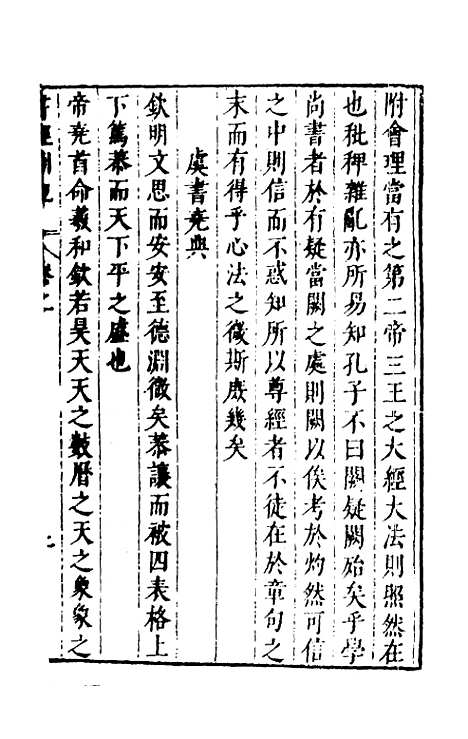 附會理當有之第二帝三王之大經大法則照然在
也秕稗雜亂亦所易知孔子不曰闕疑闕殆矣乎學
尚書者於有疑當闕之處則闕以俟考於灼然可信
之中則信而不惑知所以尊經者不徒在於章句之
末而有得乎心法之微斯庶幾矣
虞書堯典
欽明文思而安安至德淵微矣恭讓而被四表格上
下篤恭而天下平之盛也
帝堯首命羲和欽若昊天天之數曆之天之象象之